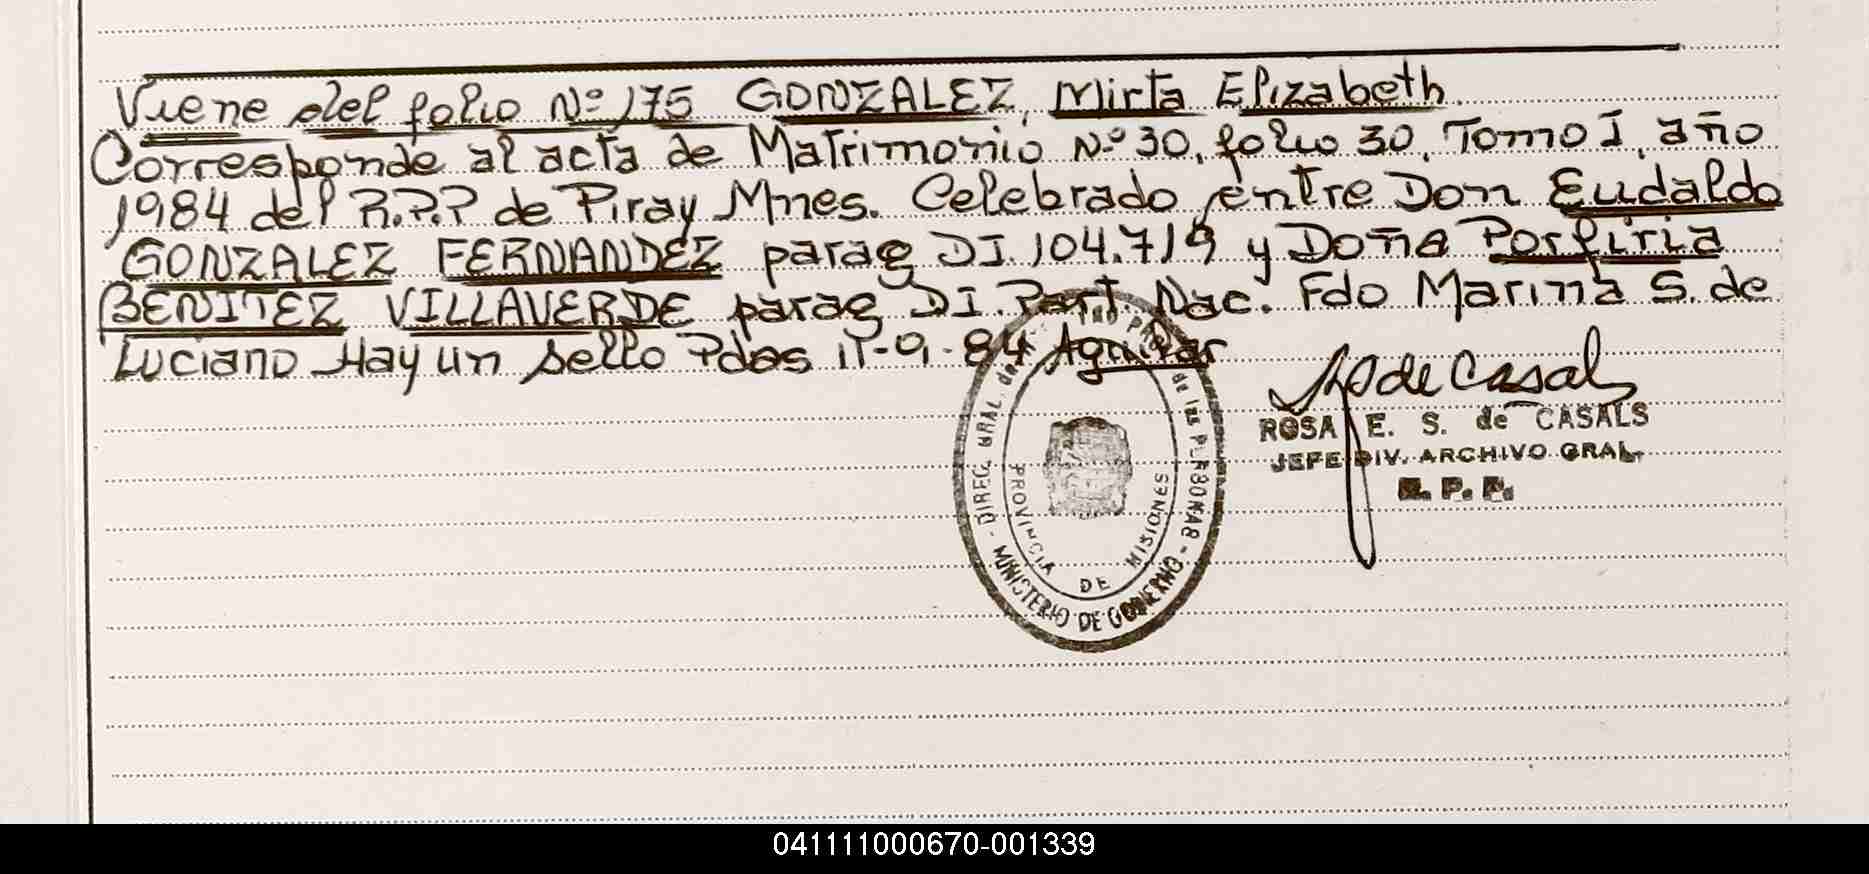 Viene del folio Nº 175 GONZALEZ, Mirta Elizabeth.
Corresponde al acta de Matrimonio Nº 30, folio 30, Tomo I, año
1984 del R.P.P de Piray Mnes. Celebrado entre Don Eudaldo
GONZALEZ FERNANDEZ parag DI. 104.719 y Doña Porfiria
BENITEZ VILLAVERDE parag DI. Part. Nac. Fdo Marina S. de
Luciano Hay un sello Pdas 11-9-84 Aguilar
de Casals
ROSA E. S. de CASALS
JEFE DIV. ARCHIVO GRAL.
R. P. P.
DIREC. GRAL. de de las PERSONAS - MINISTERIO DE GOBIERNO -
PROVINCIA DE MISIONES
041111000670-001339